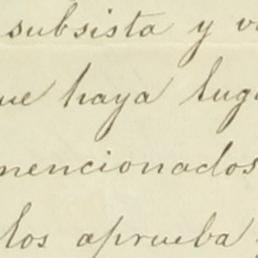 subsista y v
ue haya luga
mencionados
los aprueba